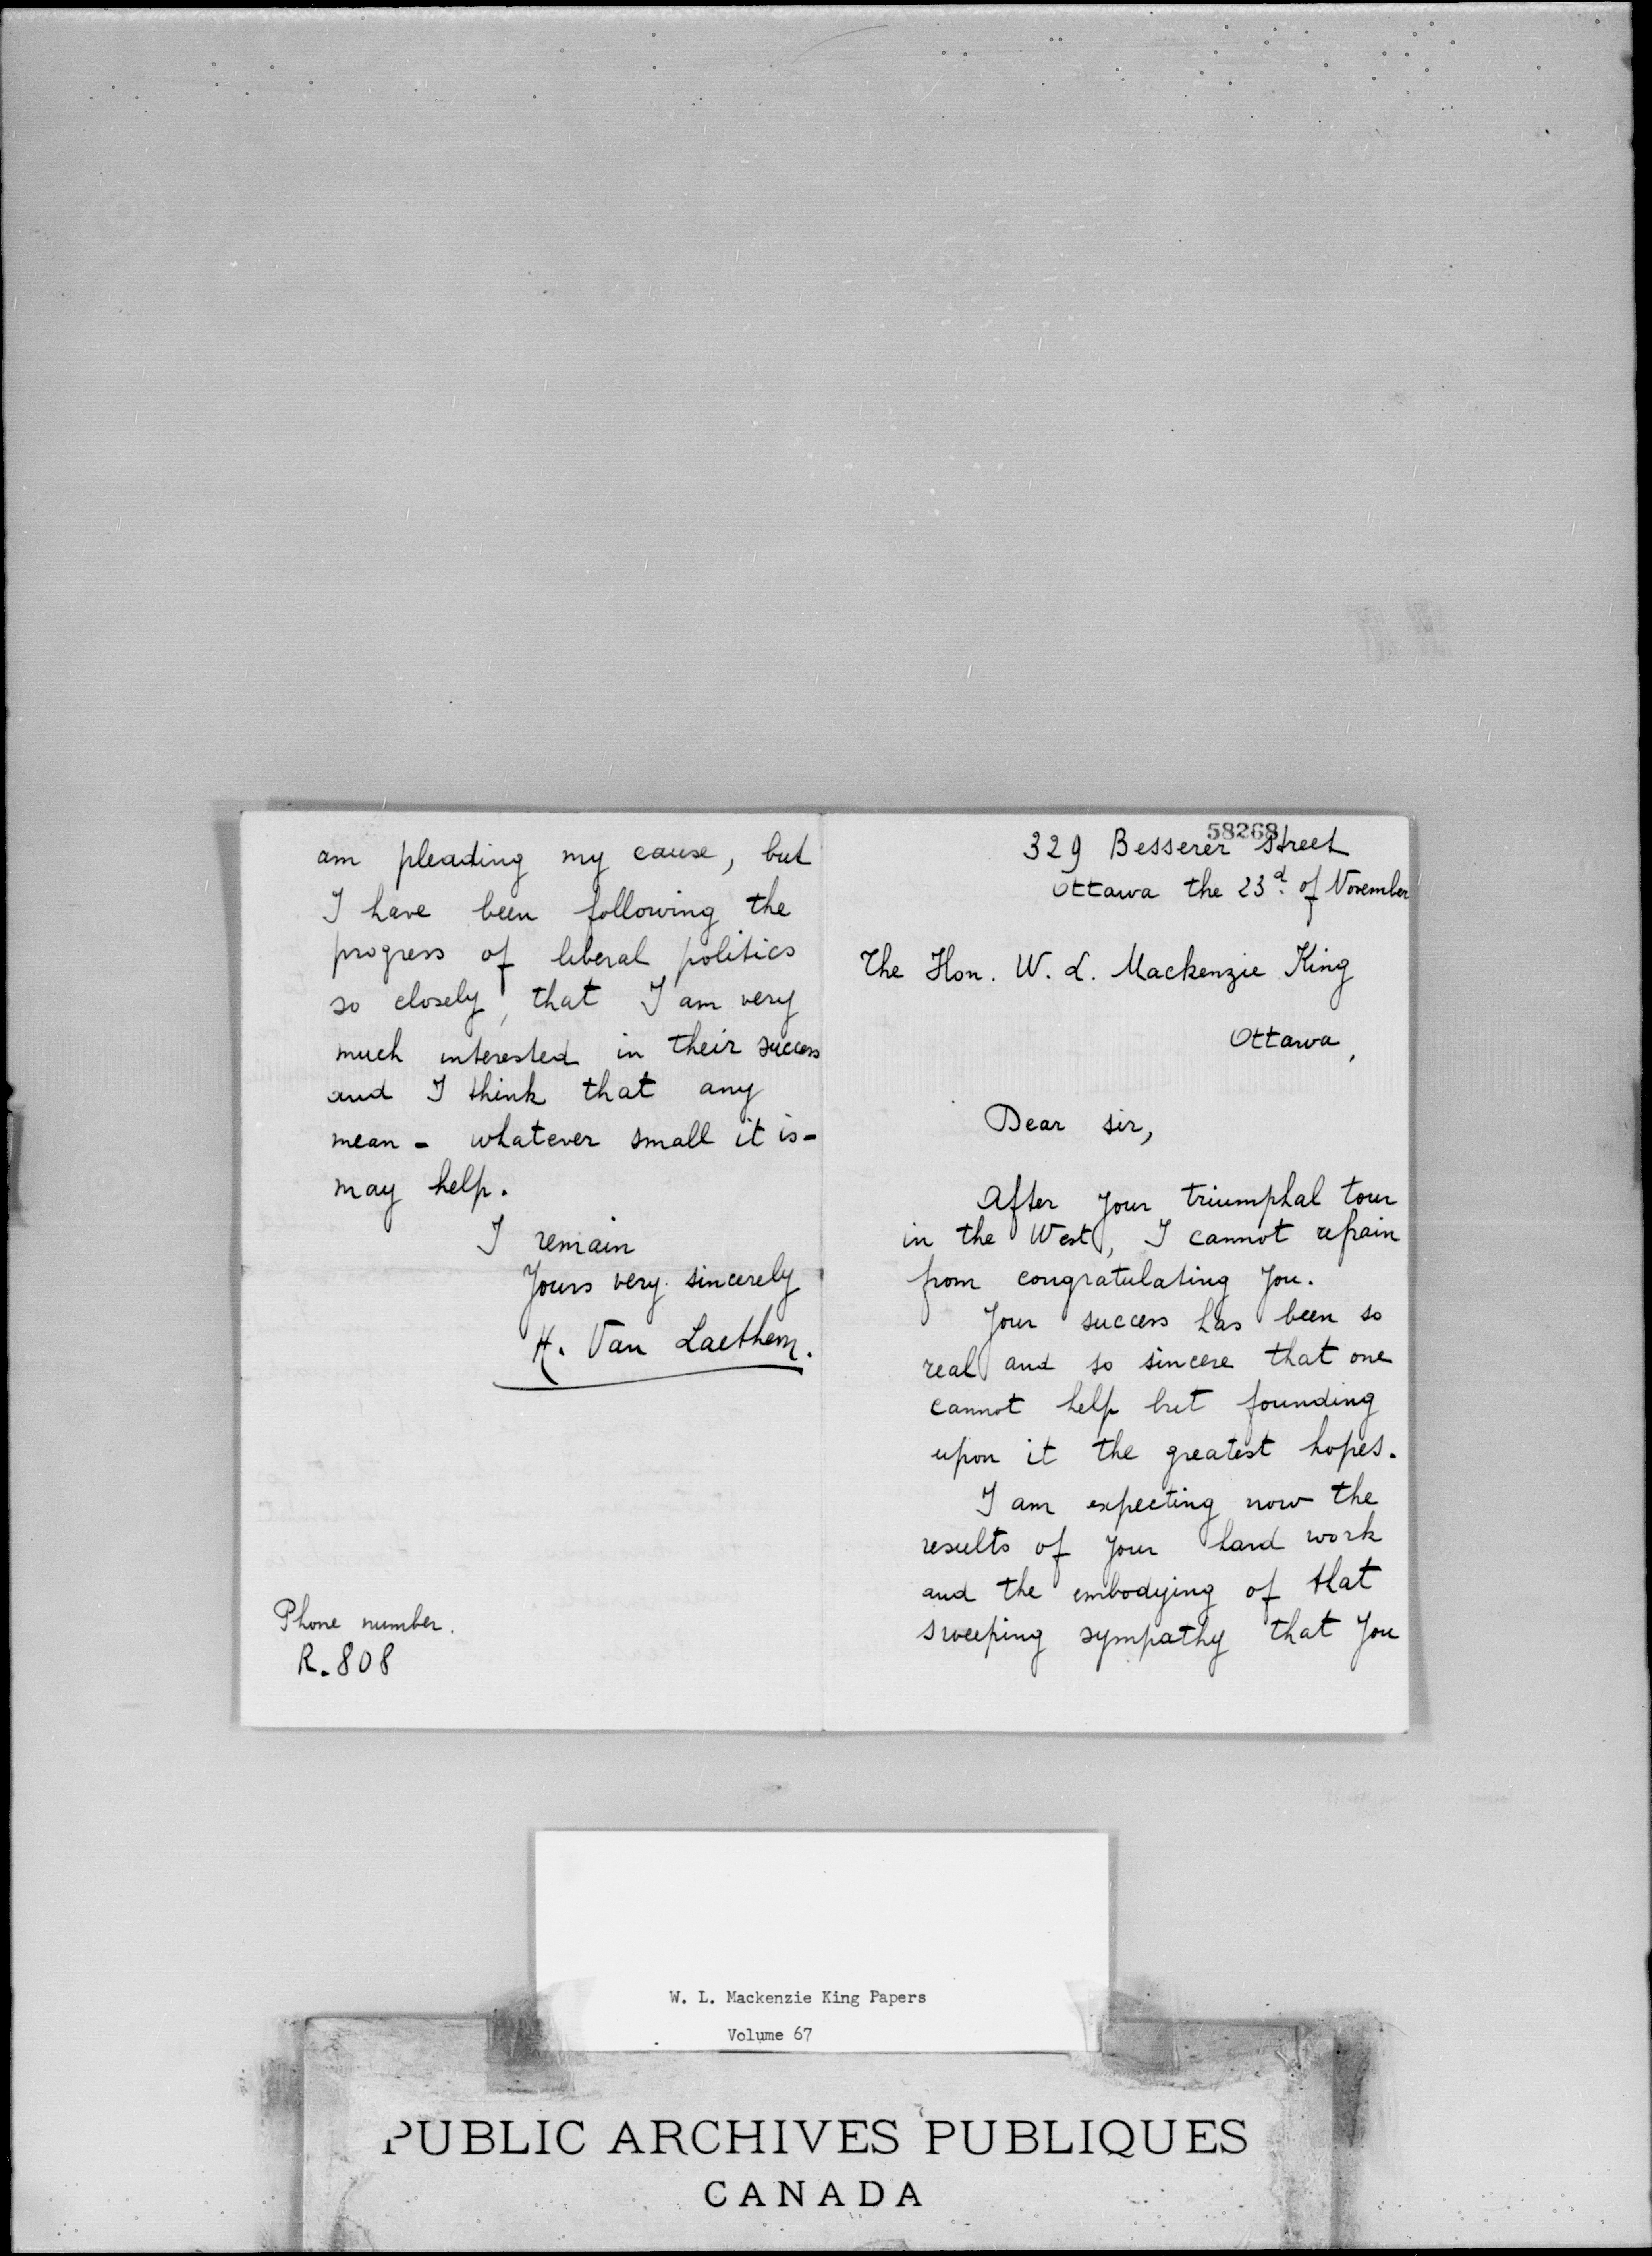 am pleading my cause, but
I have been following the
progress of liberal politics
so closely, that I am very
much interested in their success
and I think that any
mean - whatever small it is -
may help.
I remain
Yours very sincerely
H. Van Laethem.
Phone number.
R. 808
58268
329 Besserer Street
Ottawa the 23d. of November
The Hon. W. L. Mackenzie King
Ottawa,
Dear sir,
After your triumphal tour
in the West, I cannot refrain
from congratulating you.
Your success has been so
real and so sincere that one
cannot help but founding
upon it the greatest hopes.
I am expecting now the
results of your hard work
and the embodying of that
sweeping sympathy that you
W. L. Mackenzie King Papers
Volume 67
PUBLIC ARCHIVES PUBLIQUES
CANADA